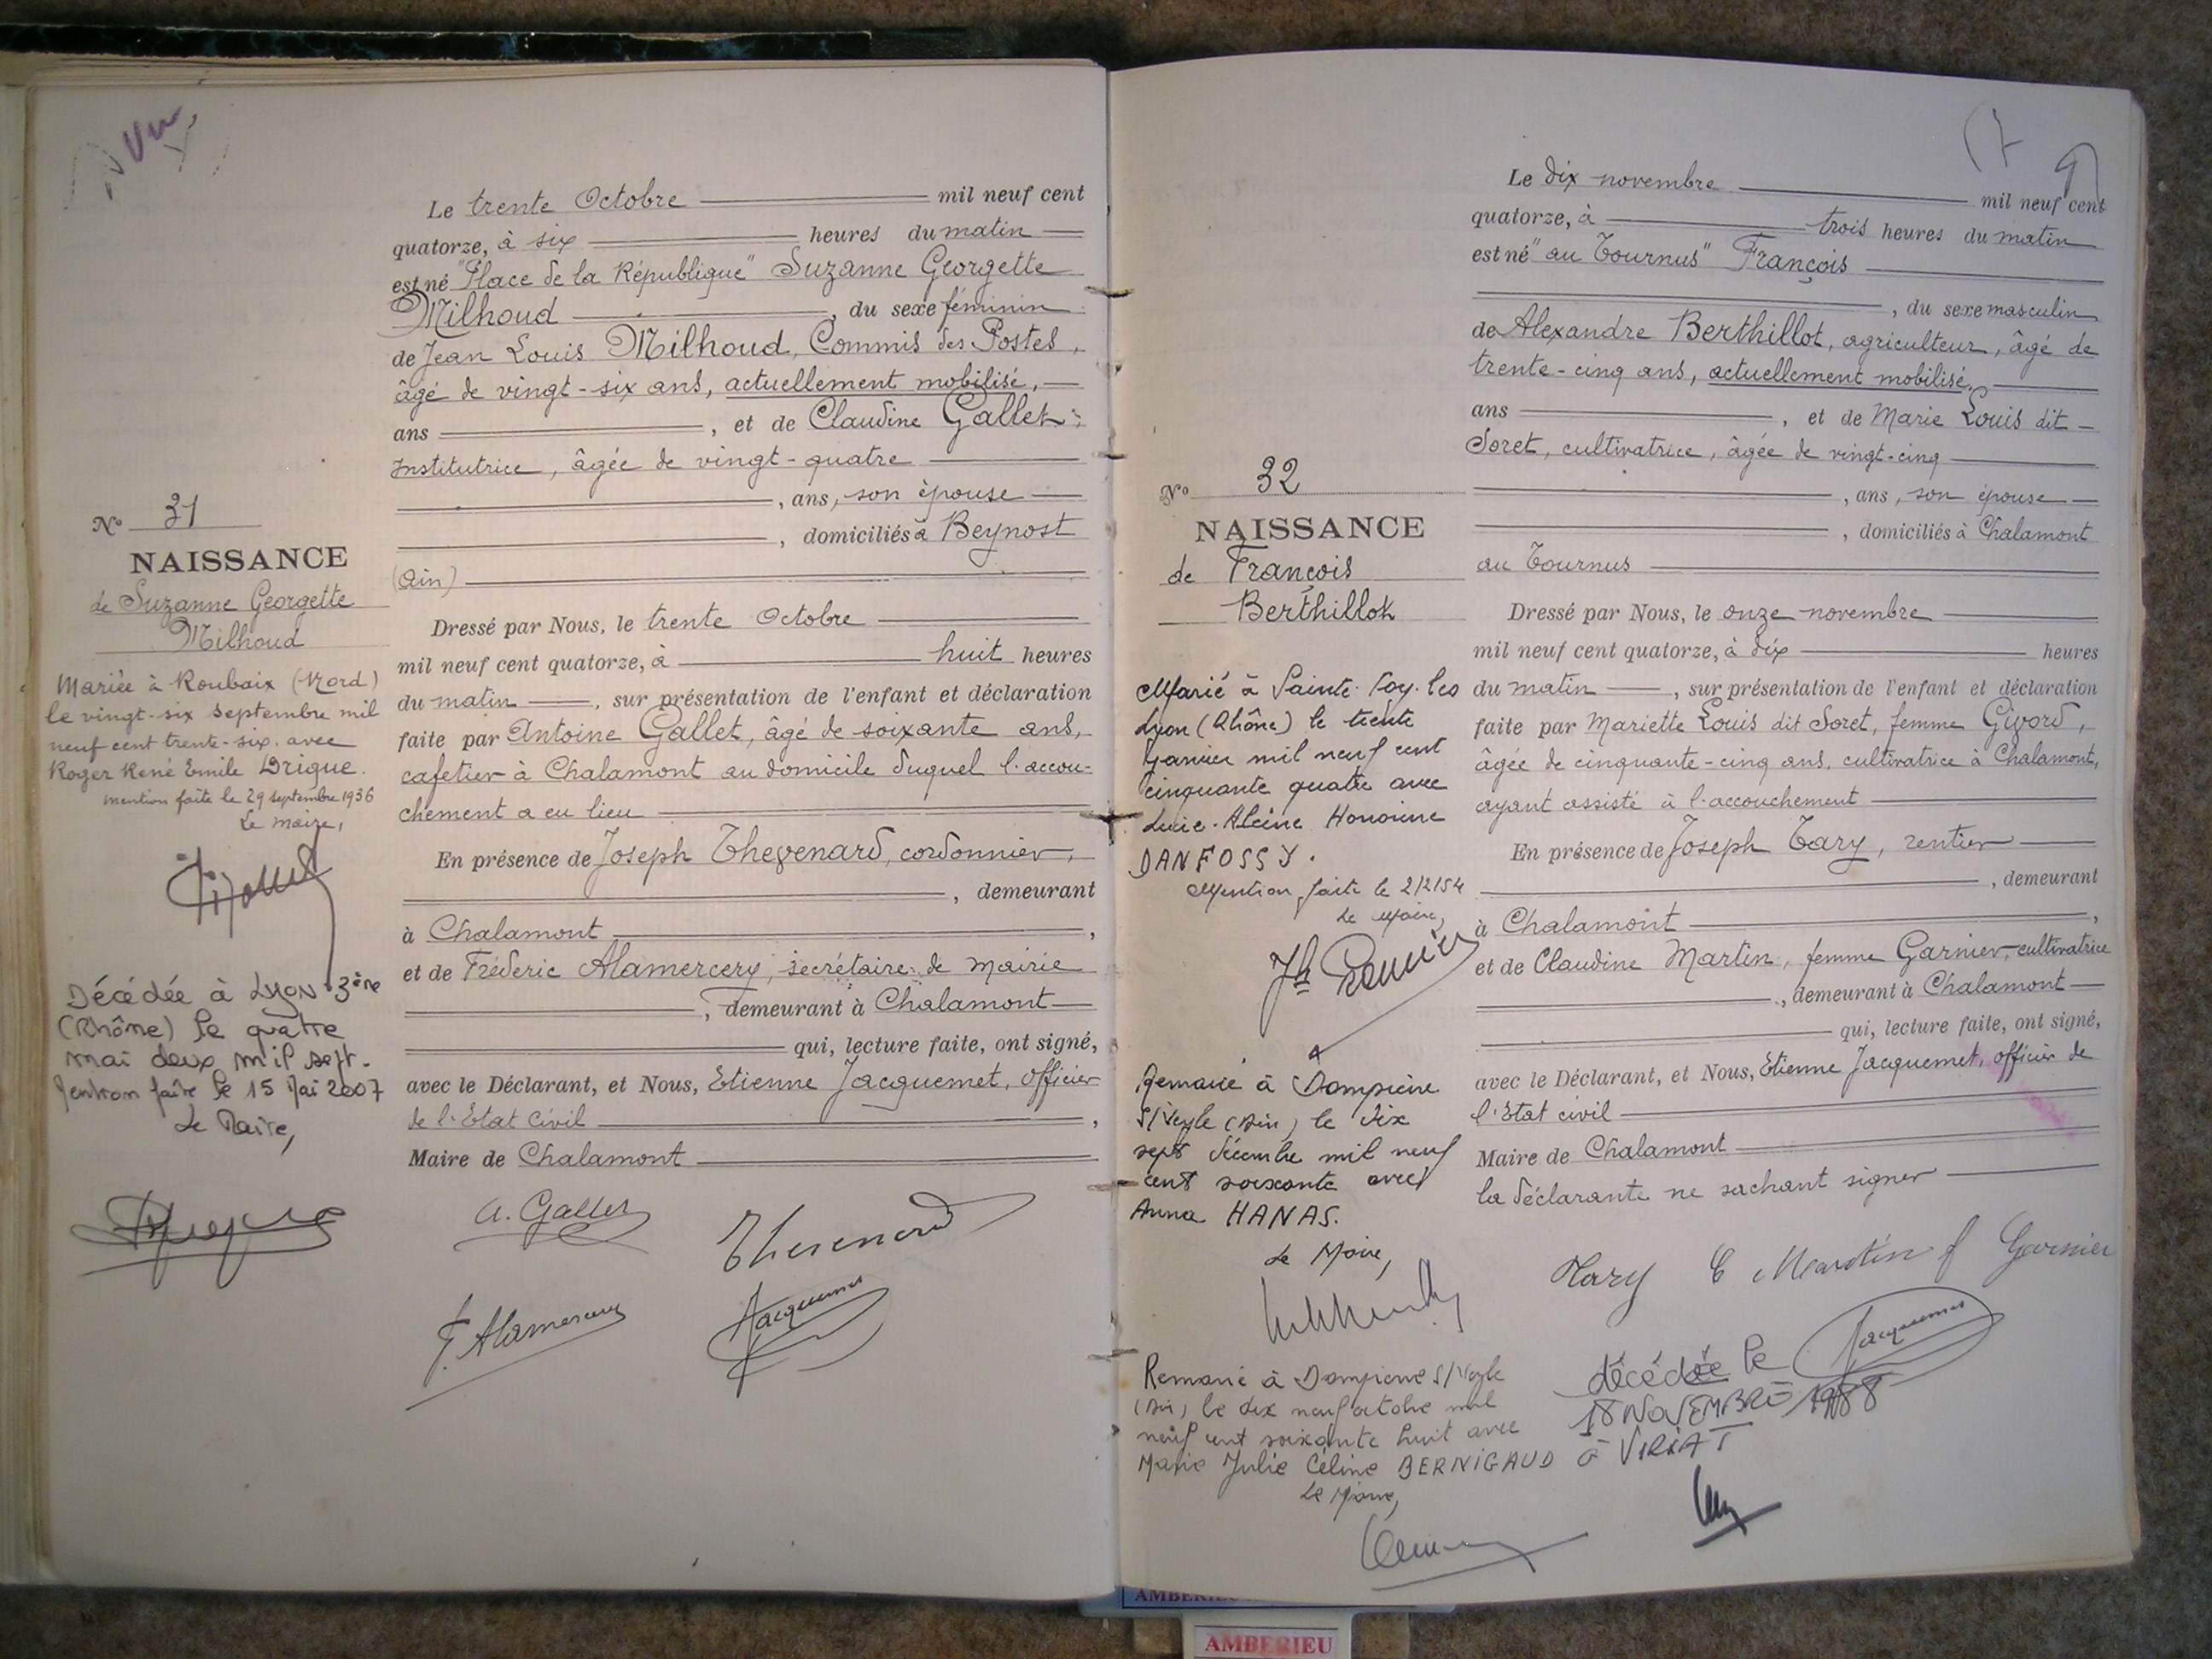 Vu
Le trente Octobre mil neuf cent
quatorze, à six heures du matin
est né "Place de la République" Suzanne Georgette
Milhoud, du sexe féminin
de Jean Louis Milhoud, Commis des Postes,
âgé de vingt-six ans, actuellement mobilisé,
ans, et de Claudine Gallet,
Institutrice, âgée de vingt-quatre
, ans, son épouse
, domiciliés à Beynost
(Ain)
Nº 31
NAISSANCE
de Suzanne Georgette
Milhoud
Mariée à Roubaix (Nord)
le vingt-six septembre mil
neuf cent trente-six. avec
Roger René Emile Drique.
mention faite le 29 septembre 1936
Le maire,
Décédée à LYON 3ème
(Rhône) le quatre
mai deux mil sept.
Mention faite le 15 Mai 2007
Le Maire,
Dressé par Nous, le trente Octobre
mil neuf cent quatorze, à huit heures
du matin, sur présentation de l'enfant et déclaration
faite par Antoine Gallet, âgé de soixante ans,
cafetier à Chalamont au domicile duquel l'accou-
chement a eu lieu
En présence de Joseph Thevenard, cordonnier,
, demeurant
à Chalamont,
et de Fréderic Alamercery, secrétaire de Mairie
, demeurant à Chalamont
qui, lecture faite, ont signé,
avec le Déclarant, et Nous, Etienne Jacquemet, officier
de l'Etat Civil,
Maire de Chalamont
A. Gallet
Thevenard
F. Alamercery
Jacquemet
Le dix novembre mil neuf cent
quatorze, à trois heures du matin
est né "au Tournus" François
, du sexe masculin
de Alexandre Berthillot, agriculteur, âgé de
trente-cinq ans, actuellement mobilisé,
ans, et de Marie Louis dit
Soret, cultivatrice, âgée de vingt-cinq
, ans, son épouse
, domiciliés à Chalamont
au Tournus
Nº 32
NAISSANCE
de François
Berthillot
Marié à Sainte-Foy-les
Lyon (Rhône) le trente
Janvier mil neuf cent
cinquante quatre avec
Lucie-Alcine Honorine
DANFOSSY.
Mention faite le 2/2/54
Le Maire,
Remarié à Dompierre
S/Veyle (Ain) le dix
sept décembre mil neuf
cent soixante avec
Anna HANAS.
Le Maire,
Remarié à Dompierre S/Veyle
(Ain) le dix neuf octobre mil
neuf cent soixante huit avec
Marie Julie Céline BERNIGAUD
Le Maire,
Dressé par Nous, le onze novembre
mil neuf cent quatorze, à dix heures
du matin, sur présentation de l'enfant et déclaration
faite par Mariette Louis dit Soret, femme Givord,
âgée de cinquante-cinq ans, cultivatrice à Chalamont,
ayant assisté à l'accouchement
En présence de Joseph Tary, rentier
, demeurant
à Chalamont,
et de Claudine Martin, femme Garnier, cultivatrice
, demeurant à Chalamont
qui, lecture faite, ont signé,
avec le Déclarant, et Nous, Etienne Jacquemet, officier de
l'Etat civil
Maire de Chalamont
la déclarante ne sachant signer
Tary C Martin f Garnier
Jacquemet
décédée le
18 NOVEMBRE 1988
à VIRIAT
AMBERIEU